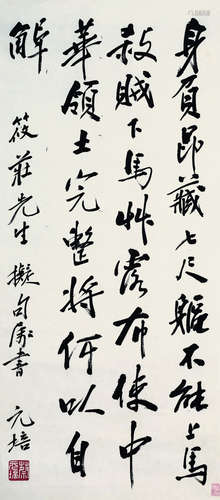 身負昂藏七尺軀不能上馬
殺賊下馬艸露布使中
華領土完整將何以自
解
筱莊先生擬句屬書 元培